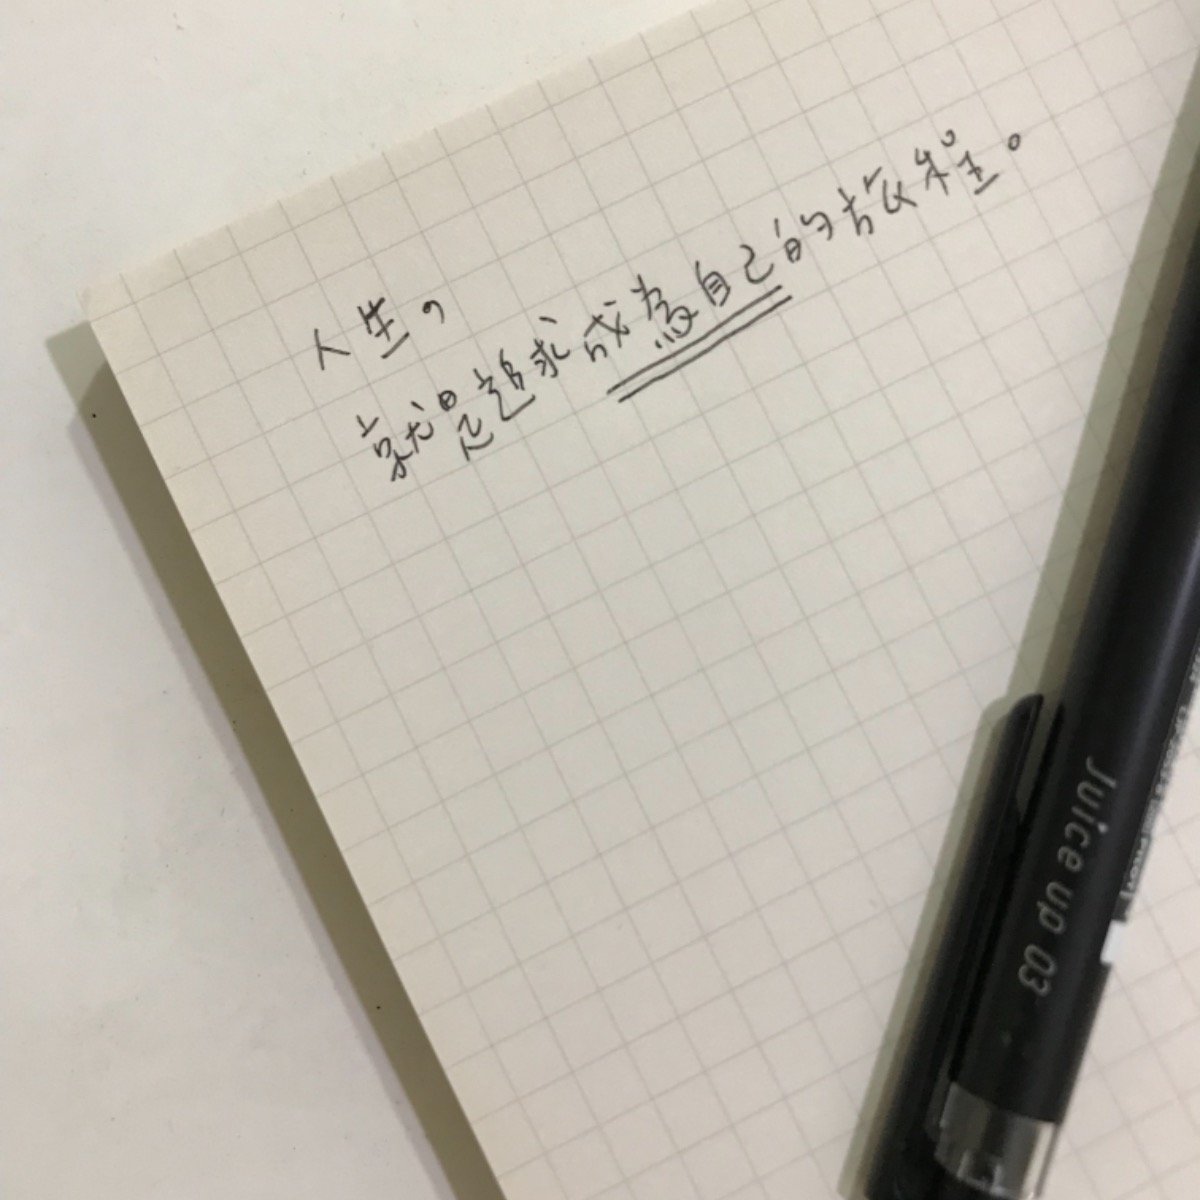 人生，
就是追求成為自己的旅程。
Juice up 03